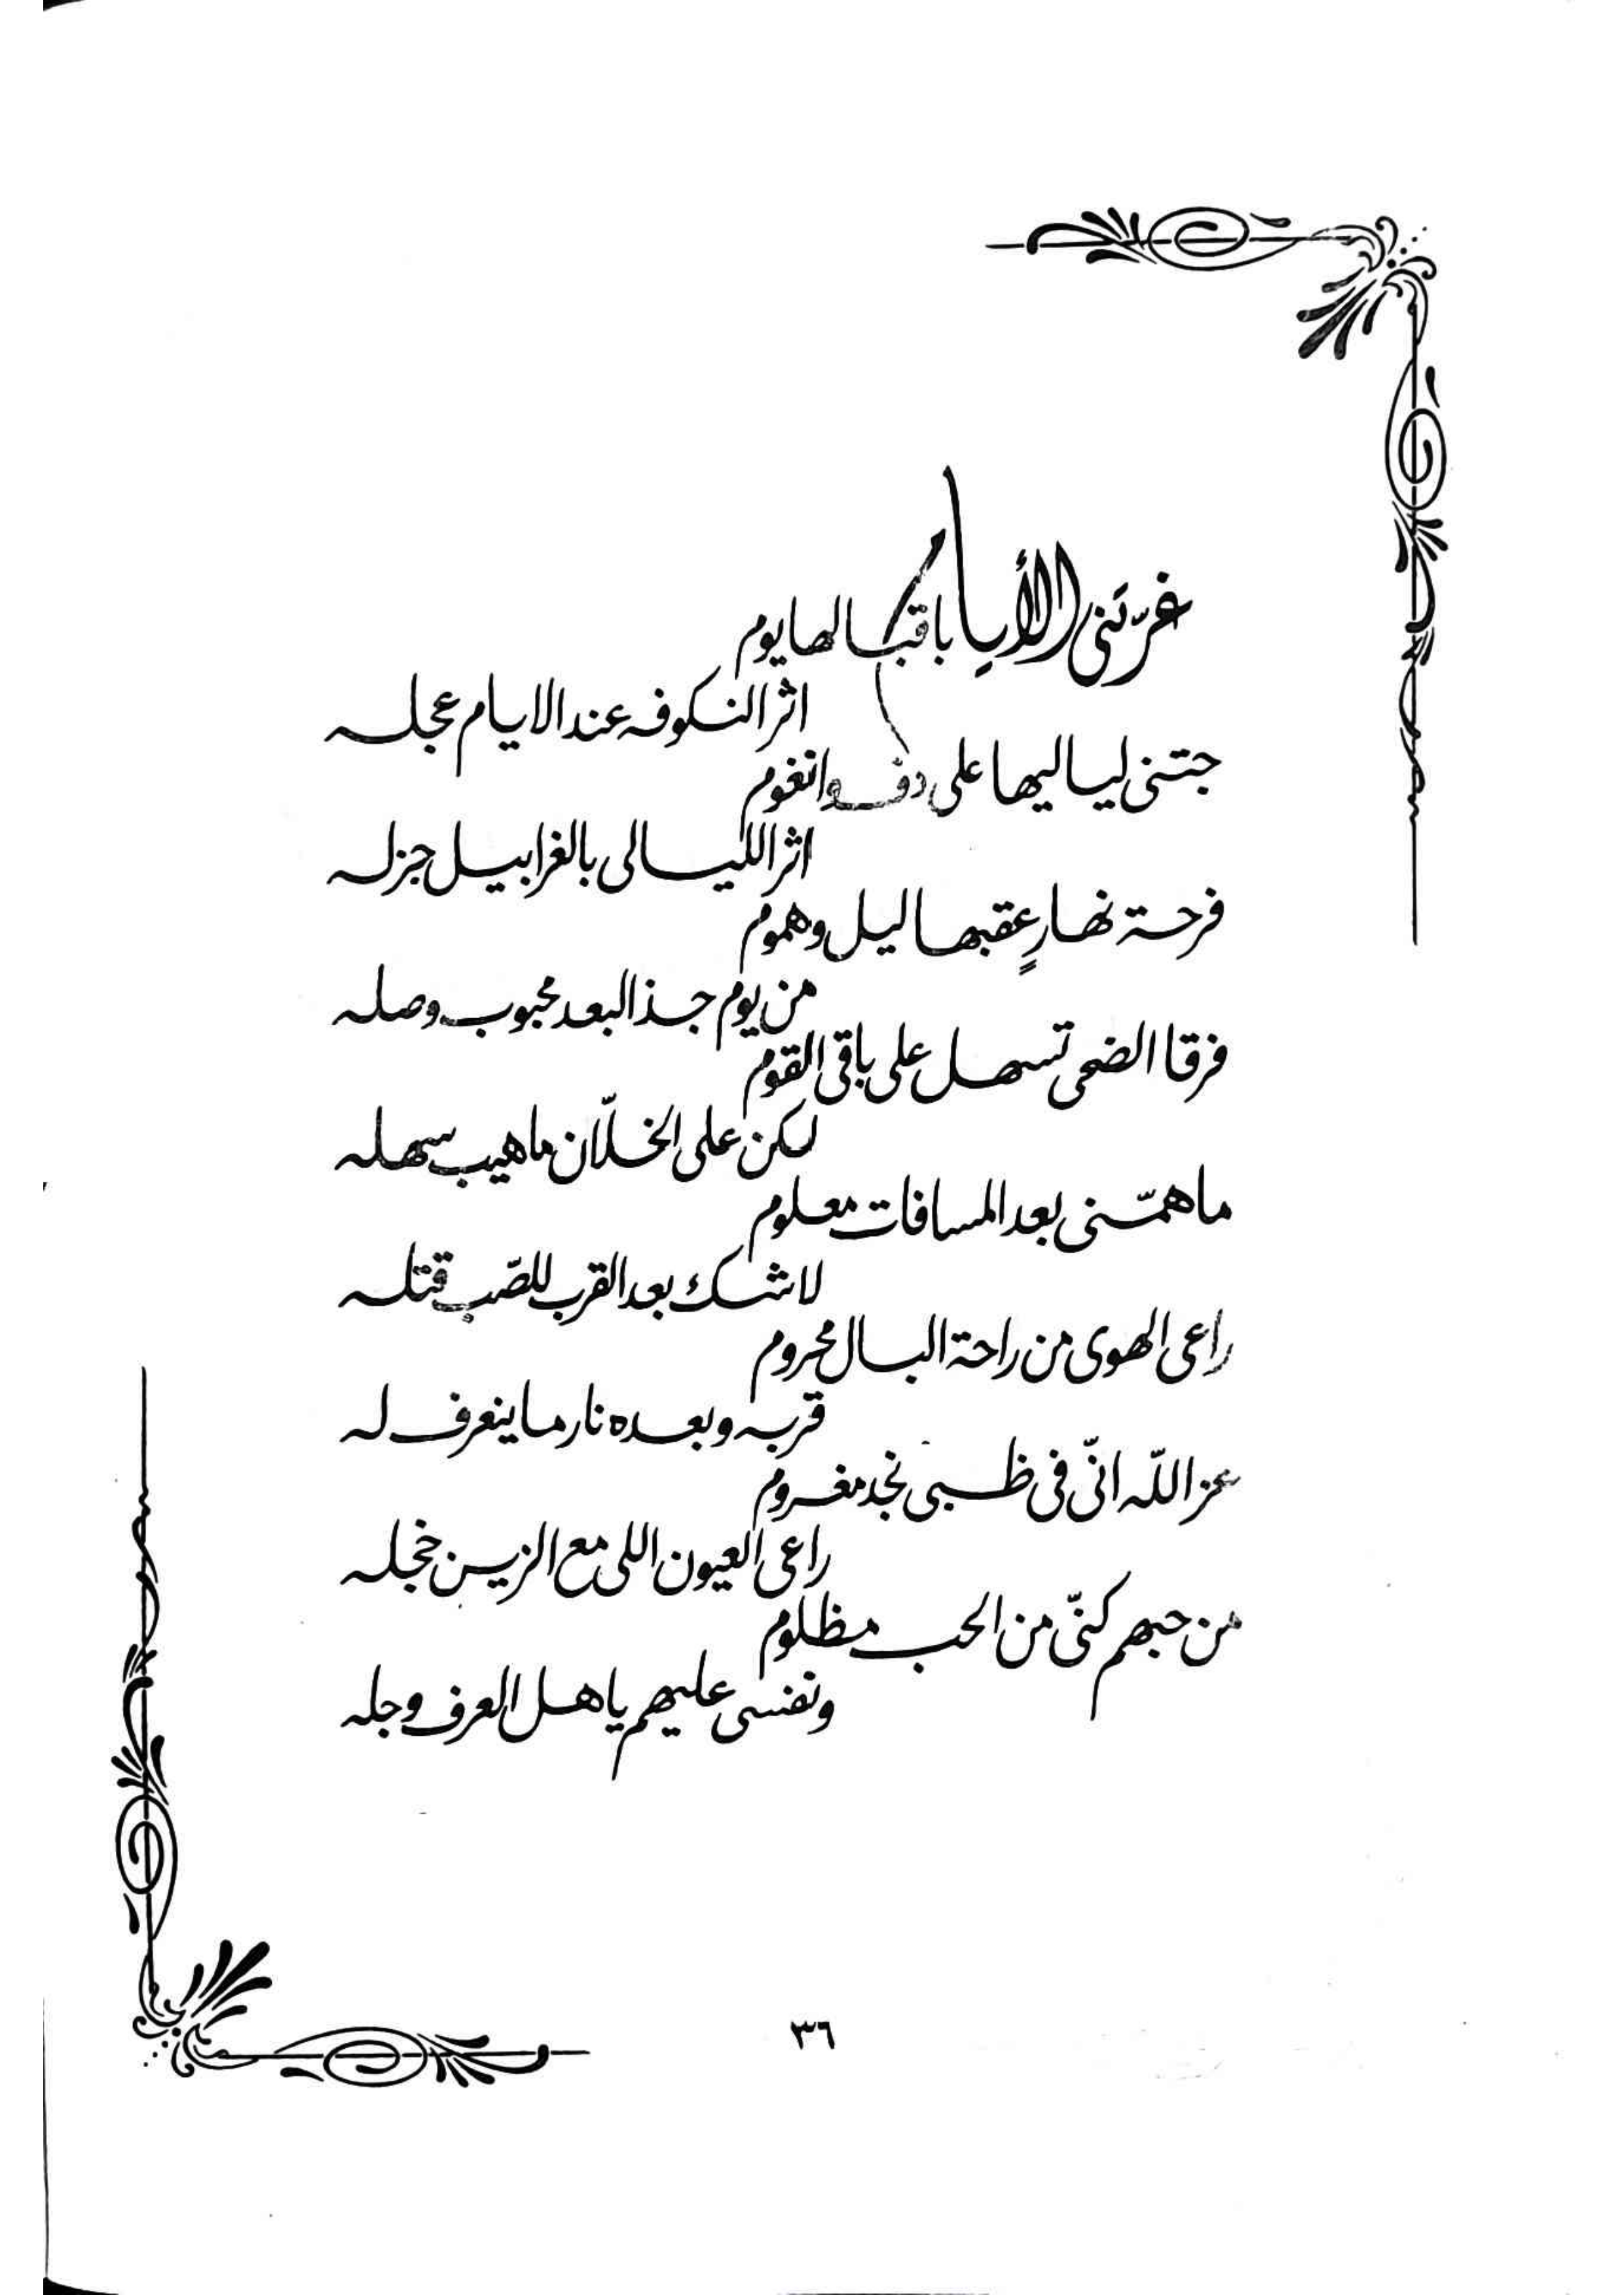 غرّتني الأيام باقبالها يوم
اثر النكوفه عند الايام عجله
جتني لياليها على دف وانغوم
اثر الليالي بالغرابيل جزله
فرحة نهارٍ عقبها ليل وهموم
من يوم جذ البعد محبوب وصله
فرقا الضحى تسهل على باقي القوم
لكن على الخلّان ماهيب سهله
ما همّني بعد المسافات معلوم
لاشك بعد القرب للصّب قتله
راعي الهوى من راحة البال محروم
قربه وبعده نار ما ينعرف له
عز اللّه انّي في ظبي نجد مغروم
راعي العيون اللي مع الزين خجله
من حبهم كنّي من الحب مظلوم
ونفسي عليهم ياهل العرف وجله
٣٦